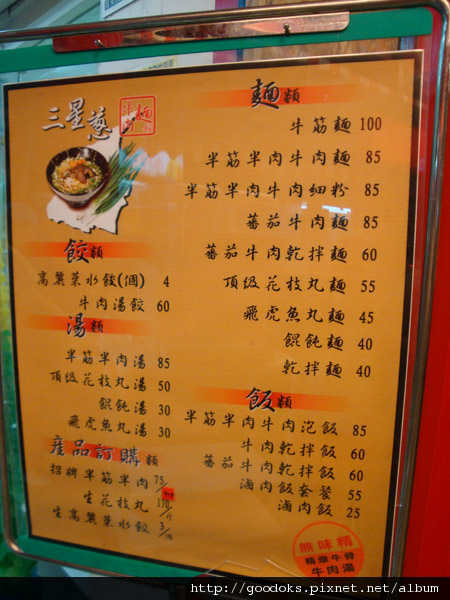 三星蔥
麵類
牛筋麵 100
半筋半肉牛肉麵 85
半筋半肉牛肉細粉 85
蕃茄牛肉麵 85
蕃茄牛肉乾拌麵 60
頂級花枝丸麵 55
飛虎魚丸麵 45
餛飩麵 40
乾拌麵 40
餃類
高麗菜水餃(個) 4
牛肉湯餃 60
湯類
半筋半肉湯 85
頂級花枝丸湯 50
餛飩湯 30
飛虎魚丸湯 30
飯類
半筋半肉牛肉泡飯 85
牛肉乾拌飯 60
蕃茄牛肉乾拌飯 60
滷肉飯套餐 55
滷肉飯 25
產品訂購類
招牌半筋半肉 75
生花枝丸
生高麗菜水餃
無味精
精燉牛骨
牛肉湯
http://goodoks.pixnet.net/album